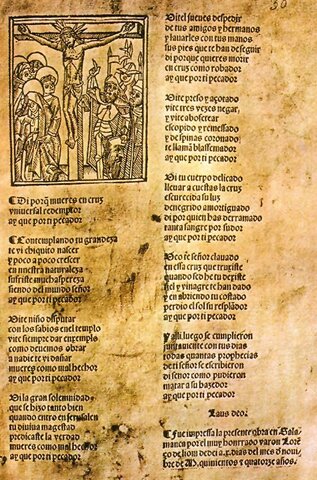 Di porq̃ mueres en cruz
vniuersal redemptor
ay que por ti pecador
Contemplando su grandeza
te vi chiquito nascer
y poco a poco crescer
en nuestra naturaleza
sufriste mucha aspereza
siendo del mundo señor
ay que por ti pecador
Uite niño disputar
con los sabios en el templo
vite siempre dar exemplo
como deuemos obrar
a nadie te vi dañar
mueres como mal hechor
ay que por ti pecador
Ui la gran solennidad
que se hizo tanto bien
quando entro en Jerusalen
tu diuina magestad
predicaste la verdad
mueres como mal hechor
ay que por ti pecador
Uite el jueues despedir
de tus amigos y hermanos
y lauarles con tus manos
sus pies que te han de seguir
di porque quieres morir
en cruz como robador
ay que por ti pecador
Uite preso y açotado
vite tres vezes negar
y vite abofetear
escopido y remessado
y de spinas coronado
te llamã blasfemador
ay que por ti pecador
Ui tu cuerpo delicado
lleuar a cuestas la cruz
escurecida su luz
denegrido amortiguado
di por quien has derramado
tanta sangre por sudor
ay que por ti pecador
Ueo te señor clauado
en essa cruz que truxiste
quando sed hu de dexiste
fiel y vinagre te han dado
y en abriendo tu costado
perdio el sol su resplãdor
ay que por ti pecador
Y alli luego se cumplieron
juntamente con tus dias
todas quantas prophecias
de ti señor se escribieron
di señor como pudieron
matar a su hazedor
ay que por ti pecador
Laus deo.
Fue impressa la presente obra en Sala
manca por el muy honrrado varon Lorẽ
ço de liom dedei a.rr. dias del mes d nouiem
bre de M. quinientos y quatorze años.